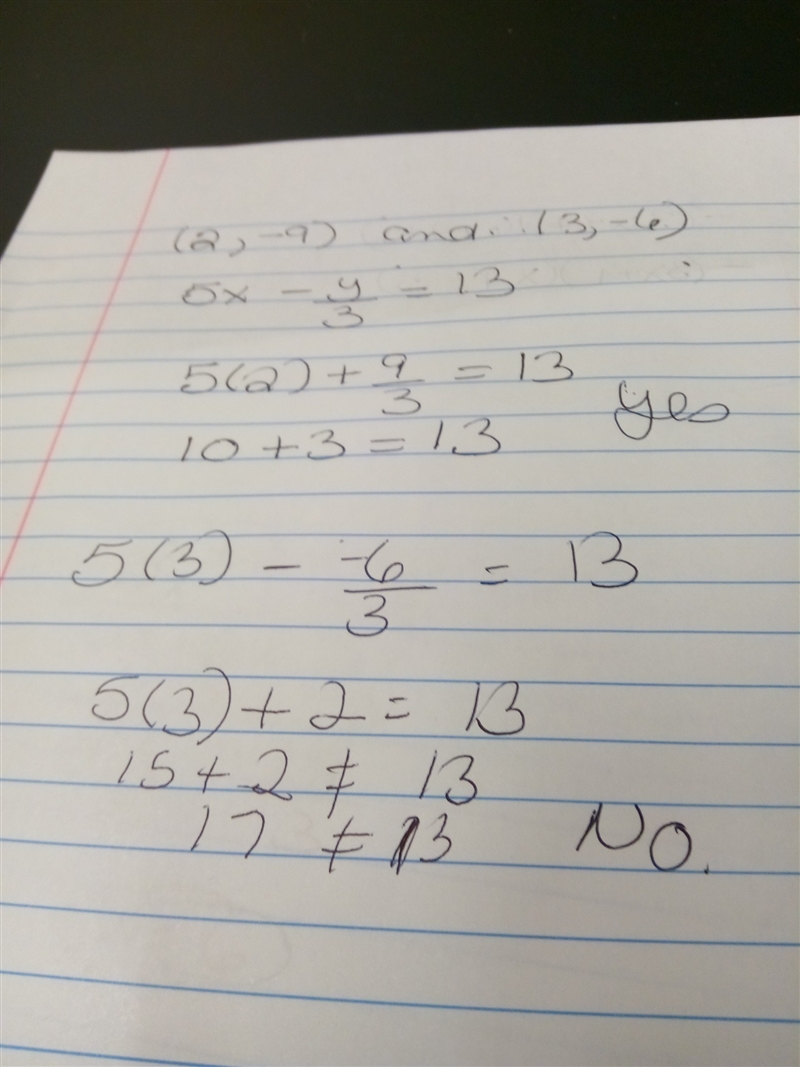 (2, -9) and (3, -6)
5x - y/3 = 13
5(2) + 9/3 = 13
10 + 3 = 13 yes
5(3) - -6/3 = 13
5(3) + 2 = 13
15 + 2 ≠ 13
17 ≠ 13 No.